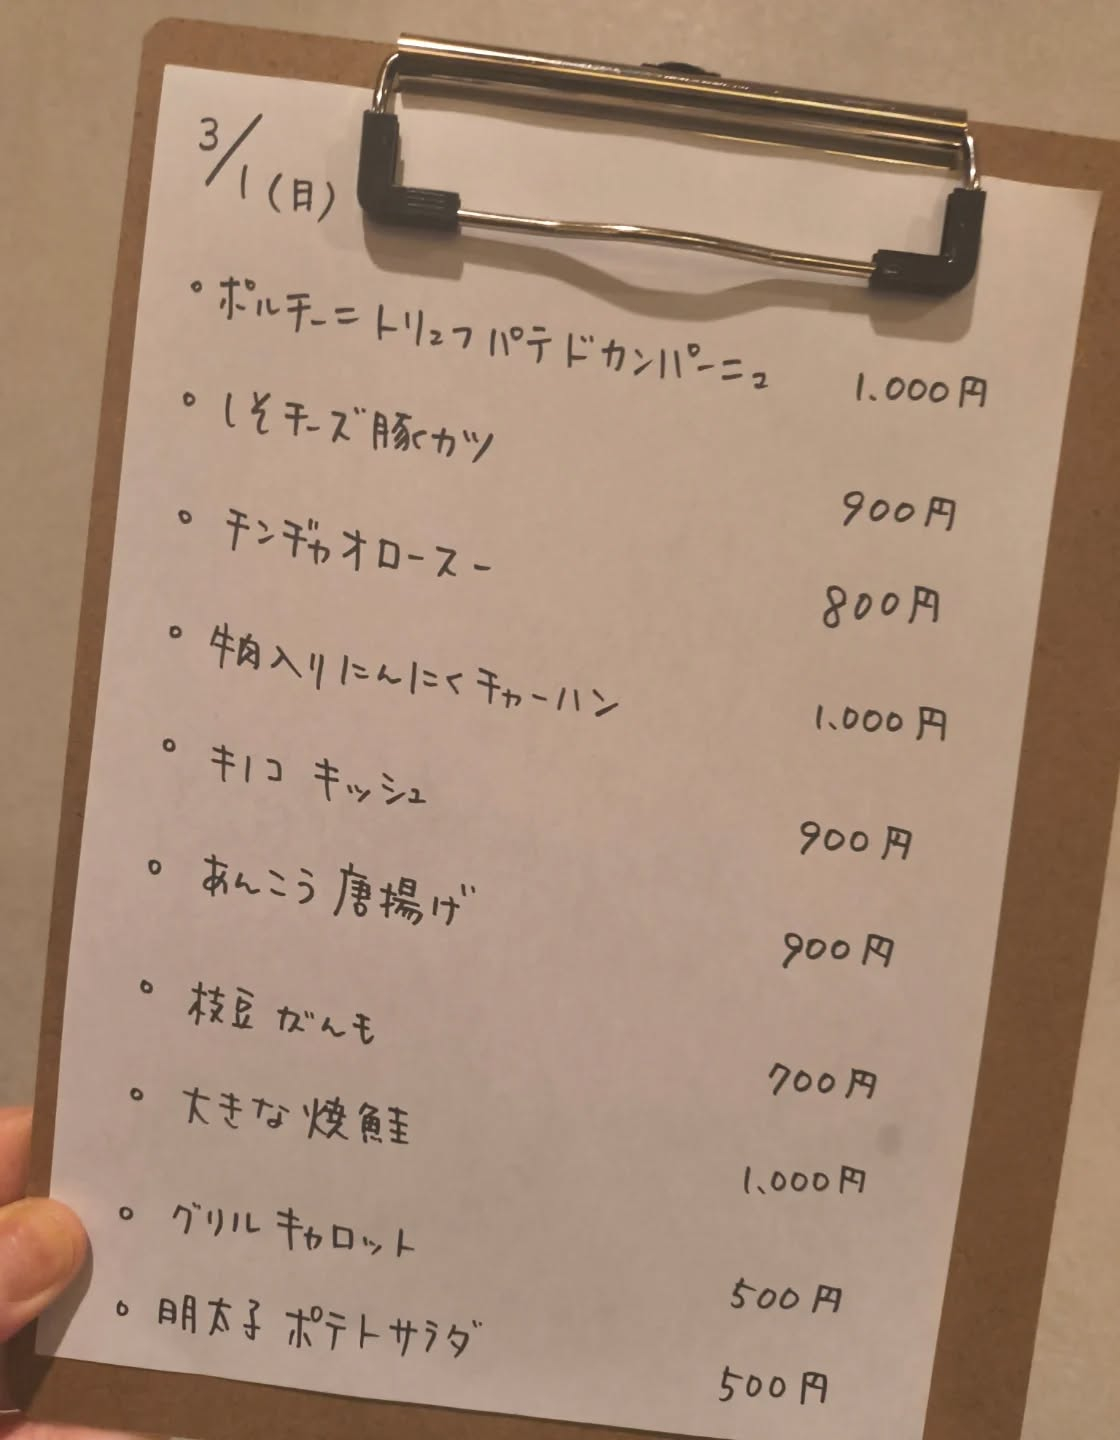 3/1(日)
・ポルチーニトリュフパテドカンパーニュ 1.000円
・しそチーズ豚くカツ 900円
・チンヂャオロースー 800円
・牛肉入りにんにくチャーハン 1.000円
・キノコ キッシュ 900円
・あんこう唐揚げ 900円
・枝豆がんも 700円
・大きな焼鮭 1.000円
・グリルキャロット 500円
・明太子ポテトサラダ 500円